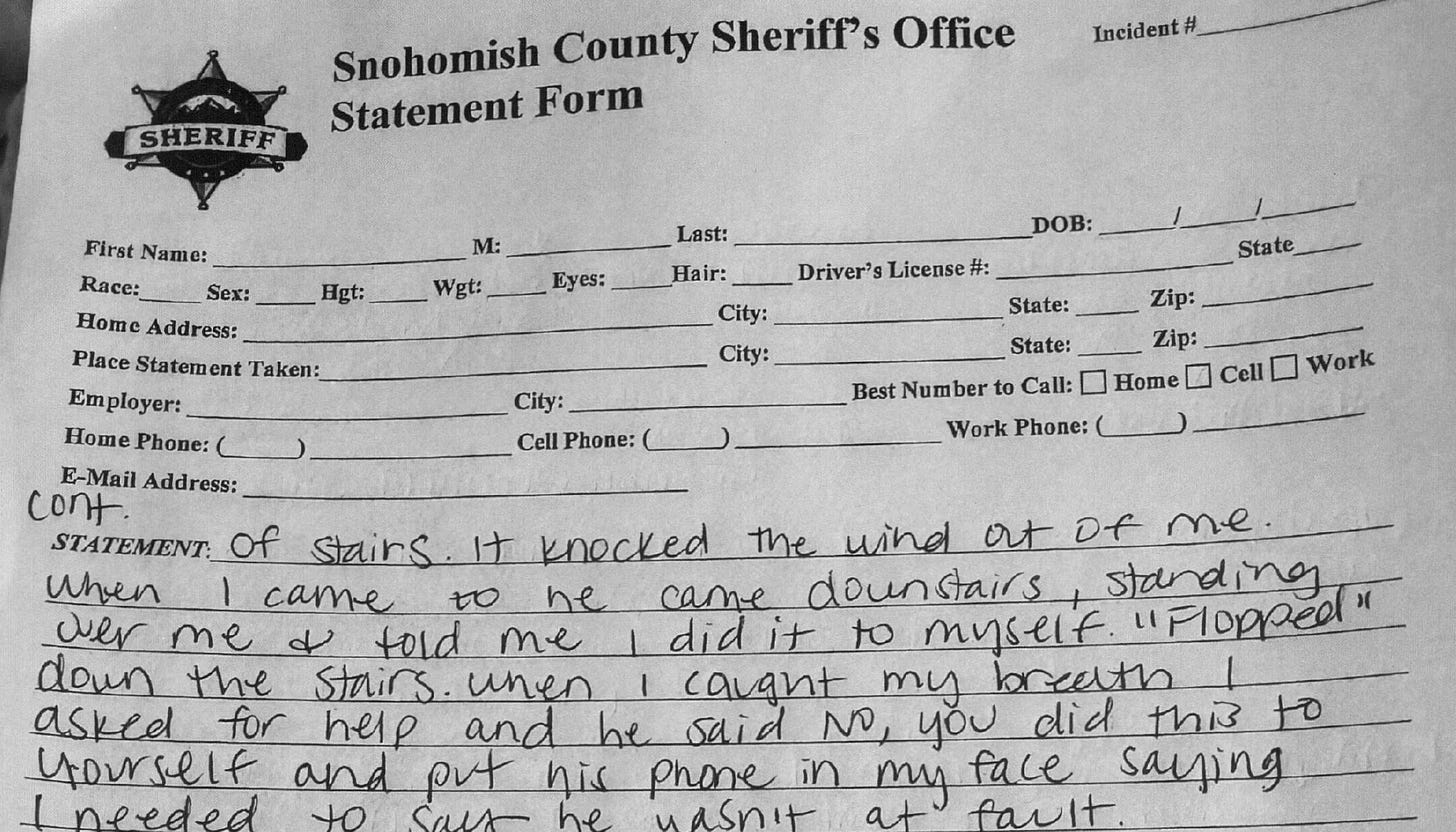 Snohomish County Sheriff's Office
Incident #
Statement Form
SHERIFF
First Name: M: Last: DOB: / /
Race: Sex: Hgt: Wgt: Eyes: Hair: Driver's License #: State
Home Address: City: State: Zip:
Place Statement Taken: City: State: Zip:
Employer: City: Best Number to Call: Home Cell Work
Home Phone: ( ) Cell Phone: ( ) Work Phone: ( )
E-Mail Address:
cont.
STATEMENT: Of stairs. It knocked the wind out of me.
When I came to he came downstairs, standing
over me & told me I did it to myself. "Flopped"
down the stairs. When I caught my breath I
asked for help and he said NO, you did this to
yourself and put his phone in my face saying
I needed to say he wasn't at fault.